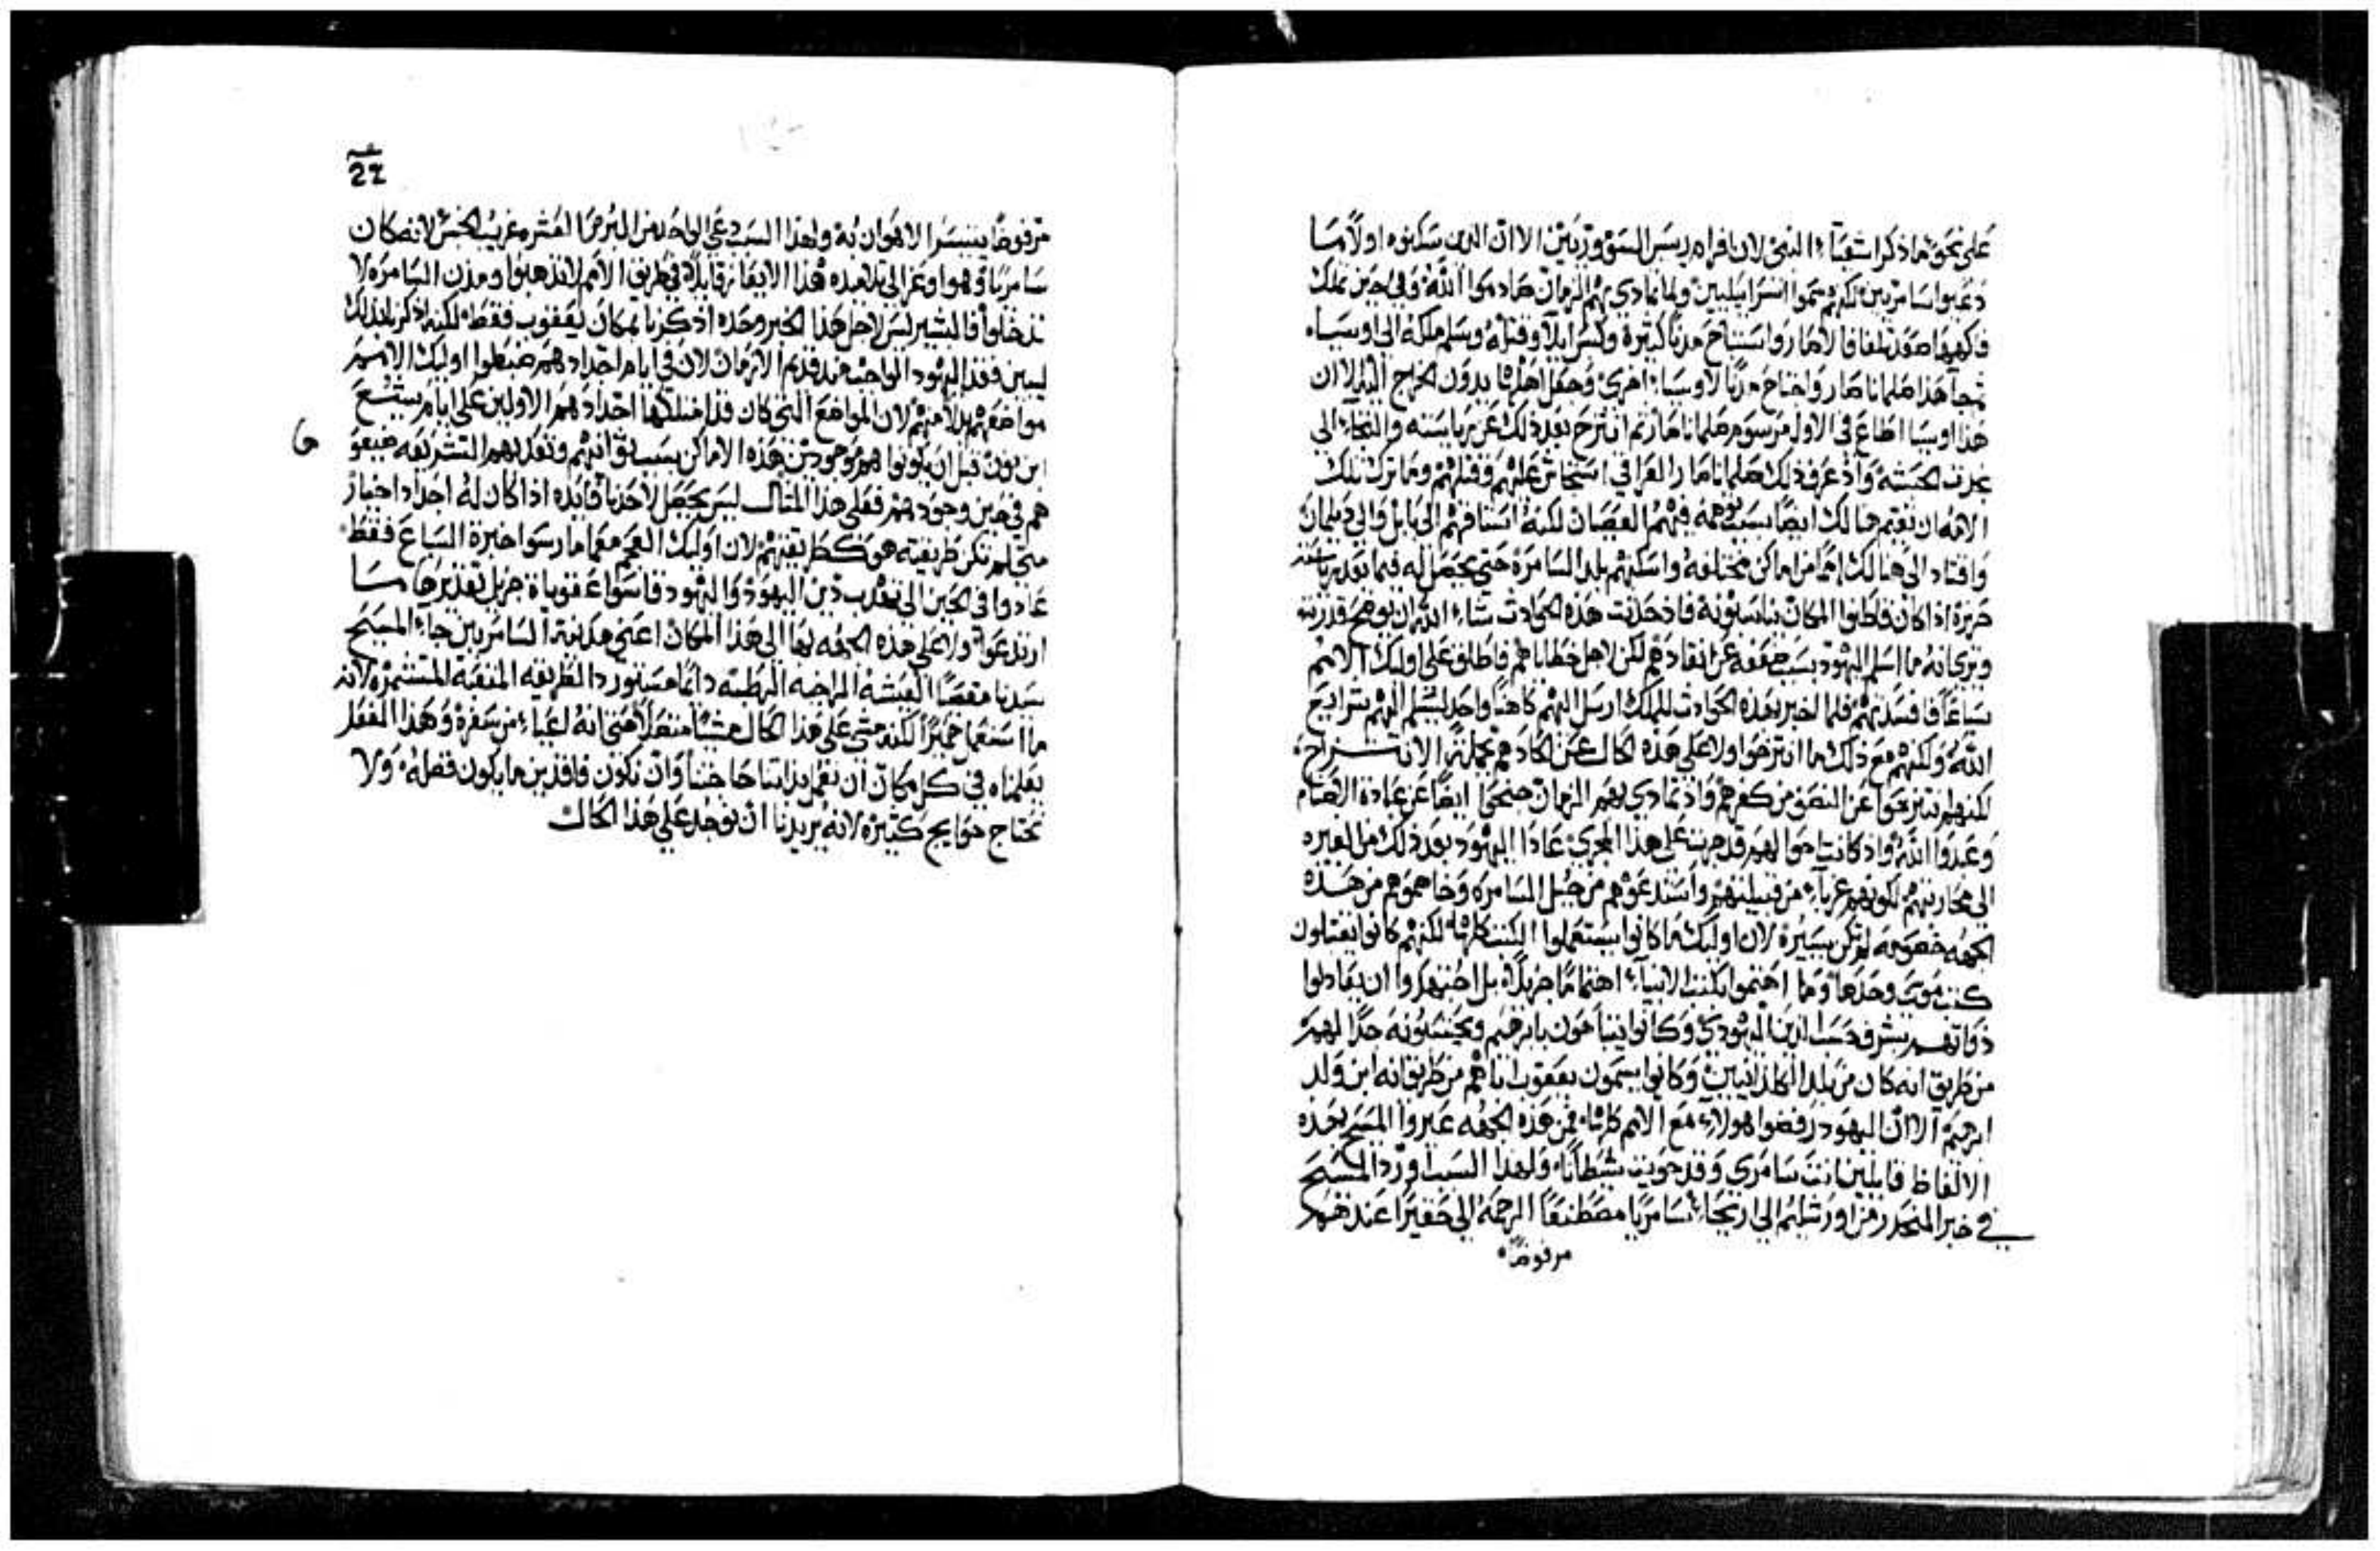 على نحو ما ذكر اشعياء النبي لان افرام ريس السوق وربتين الا ان الذين سكنوه اولاً ما
دعيوا سامريين لكنهم سموا اسراييليين ولما تمادى بهم الزمان صادموا الله وفي حين تملك
فاكهيوا صعد تلغافالاصار واستباح مدناً كثيرة وكسر ايلا وقتله وسلم ملكه الى اوسيا
ثم جا هذا صلماناصار واجتاح مدناً لاوسياء اخرى وجعل اهلها يدون الخراج اليه الا ان
هذا اوسيا اطاع في الاول مرسوم صلماناصار ثم انتزح بعد ذلك عن رياسته والتجاء الى
عون الحبشه واذ عرف ذلك صلماناصار العراقي استجاش عليهم وقتلهم وما ترك تلك
الامه ان تقيم هنالك ايضاً بسبب توهمه فيهم العصيان لكنه استاقهم الى بابل والى
واقتاد الى هنالك امما من اماكن مختلفه واسكنهم بلد السامرة حتى يحصل له فيما بعد
حريزة اذا كان قاطنوا المكان يناسبونه فاذ حدثت هذه الحوادث شاء الله ان يوضح قدرته
ويرى انه ما اسلم اليهود بسبب ضعفه عن انقادهم لكن لاجل خطاياهم فاطلق على اوليك الامم
سباعاً فافسدتهم فلما اخبر بهذه الحوادث للملك ارسل اليهم كاهناً واحد ليسلم اليهم شرايع
الله ولكنهم مع ذلك ما انتزحوا ولا على هذه الحال عن الحادهم بجملته الانتزاح
لكنهم انتزعوا عن النصف من كفرهم واذ تمادى بهم الزمان جنحوا ايضاً عن عبادة الاصنام
وعبدوا الله واذ كانت احوالهم قد جرت على هذا المجرى عادا اليهود بعد ذلك من الغيره
الى محاربتهم لكونهم غرباء من قبيلتهم واستدعوهم من جبل السامره وخاصموهم من هذه
الجهه خصومه لم تكن يسيره لان اوليك ما كانوا يستعملوا الكتب كلها لكنهم كانوا يقبلون
كتب موسى وحدها وما اهتموا بكتب الانبياء اهتماماً جزيلاً بل اجتهدوا ان يعادلوا
ذواتهم بشرف حسب الدين اليهودي وكانوا يتباهون بابرهيم ويحتسبونه جدا لهم
من طريق انه كان من بلد الكلدانيين وكانوا يسمون يعقوب اباهم من طريق انه ابن ولد
ابرهيم الا ان اليهود رفضوا هولاء مع الامم كلها فمن هذه الجهه عيروا المسيح بهذه
الالفاظ قايلين انت سامري وقد حويت شيطاناً ولهذا السبب اورد المسيح
في خبر المنحدر من اورشليم الى اريحاء سامرياً مصطنعاً الرحمة الي حقيراً عندهم
مرفوضاً
22
مرفوضاً يتيسر الاهوان به ولهذا السبب دعي الواحد من البرص العشره غريب الجنس لانه كان
سامرياً وهو اوعز الى تلاميذه هذا الايعاز قايلاً في طريق الامم لا تذهبوا ومدن السامره لا
تدخلوا فالبشير ليس لاجل هذا الخبر وحده اذكرنا بمكان يعقوب فقط لكنه اذكرنا بذلك
ليبين فقد اليهود الواجب منذ قديم الازمان لان في ايام اجدادهم ضبطوا اوليك الامم
مواضعهم بدلاً منهم لان المواضع التي كان قد امتلكها اجدادهم الاولين على ايام يشوع
ابن نون قبل ان يكونوا هم موجودين هذه الاماكن بسبب توانيهم وتعديهم الشريعه ضيعو
هم في حين وجودهم فعلى هذا المثال ليس يحصل لاحدنا فايده اذا كان له اجداد اخيار
متى لم تكن طريقته هو كطريقتهم لان اوليك العجم معما مارسوا خبرة السباع فقط
عادوا في الحين الى تهذيب دين اليهود واليهود قاسوا عقوباة جزيل تقديرها ما
ارتدعوا ولا على هذه الجهه بها الى هذا المكان اعني مدينة السامريين جاء المسيح
سيدنا مقصيا العيشه الراخيه البطيه دايما مستوردا الطريقه المتعبه المتشمره لانه
ما استعمل حميراً لكنه مشى على هذا الحال مشياً متصلاً حتى انه اعياء من سفره وهذا الفعل
يعلمناه في كل مكان ان نعمل بذاتنا حاجتنا وان نكون فاقدين ما يكون فضله ولا
نحتاج حوايج كثيره لانه يريدنا ان نوجد على هذا الحال